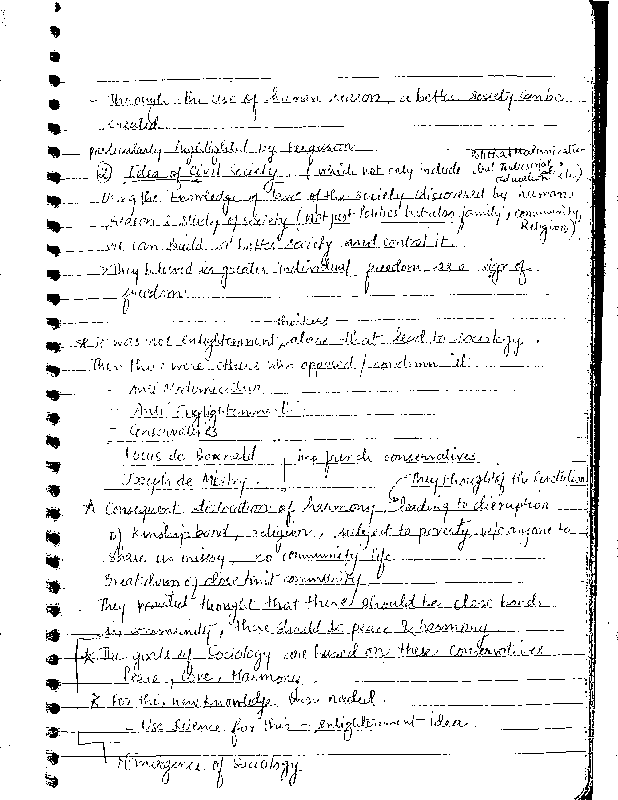 - Through the use of human reason a better society can be
created
particularly highlighted by Ferguson
② Idea of Civil Society / which not only include
Using the knowledge of laws of the society discovered by human
reason & study of society (Not just Politics but also family, community,
Religion)
we can build a better society and control it.
They believed in greater individual freedom as a sign of
freedom.
thinkers
* it was not enlightenment alone that lead to sociology.
Then there were others who opposed / condemn it
- Anti Modernisation
- Anti Englightenment
- Conservatives
Louis de Bonnald
the french conservatives
Joseph de
They thought of the
* Consequent dislocation of harmony, leading to disruption
of Kinship bond, religion, subject to poverty, w/o anyone to
share us misery no community life
Breakdown of close knit community
They provided thought that there should be close bonds
in community, there should be peace & harmony
* The goals of Sociology are based on these conservatives
Peace, Love, Harmony.
* For this new knowledge was needed.
- Use Science for this - enlightenment idea
Emergence of Sociology